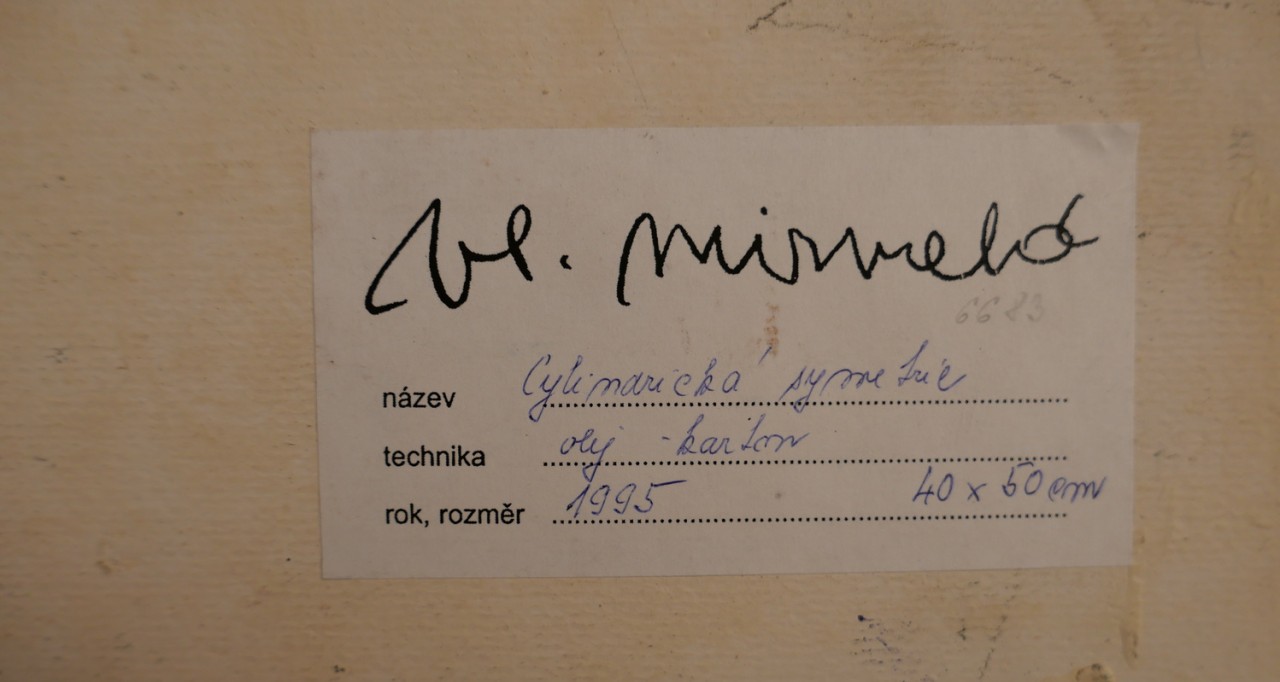 Vl. Mirvald
6683
název Cylindrická symetrie
technika olej - karton
rok, rozměr 1995 40 x 50 cm